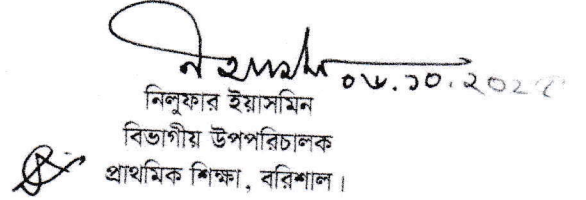 নিলুফার ইয়াসমিন
বিভাগীয় উপপরিচালক
প্রাথমিক শিক্ষা, বরিশাল।